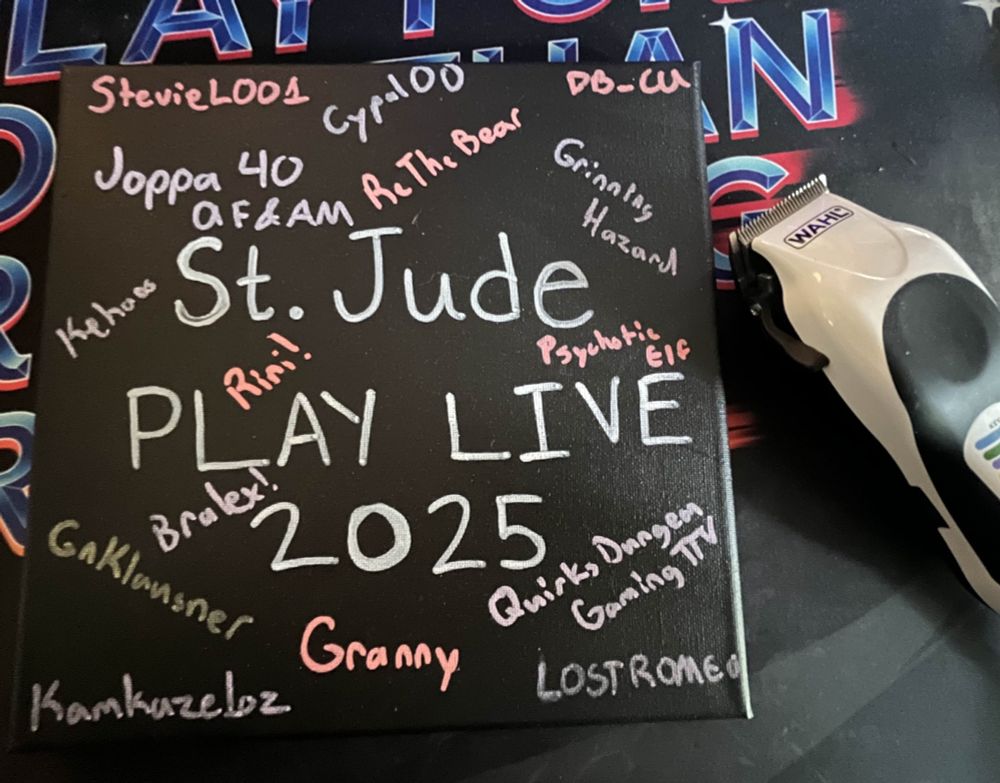 StevieL001
Cypal00
DB-CU
ReTheBear
Joppa 40
aF&AM
Grinning
Hazard
St. Jude
Kehoes
Rini!
Psychotic
Elf
PLAY LIVE
Bralex!
2025
GnKlausner
Quirks Dungeon
Gaming TTV
Granny
LOSTROMEO
Kamkazeloz
WAHL